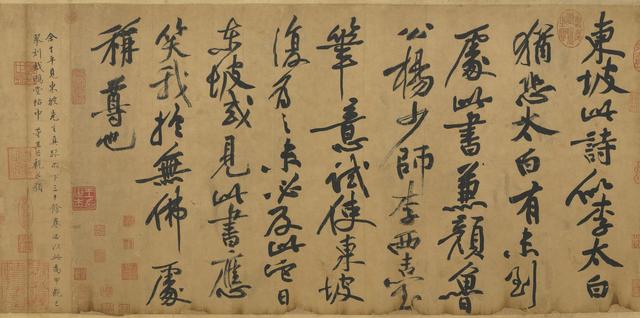 東坡此詩似李太白
猶恐太白有未到
處此書兼顏魯
公楊少師李西臺
筆意試使東坡
復為之未必及此它日
東坡或見此書應
笑我於無佛處
稱尊也
余生平見東坡先生真跡不下三十餘卷必以此為甲觀已
摹刻戲鴻堂帖中 董其昌觀并題